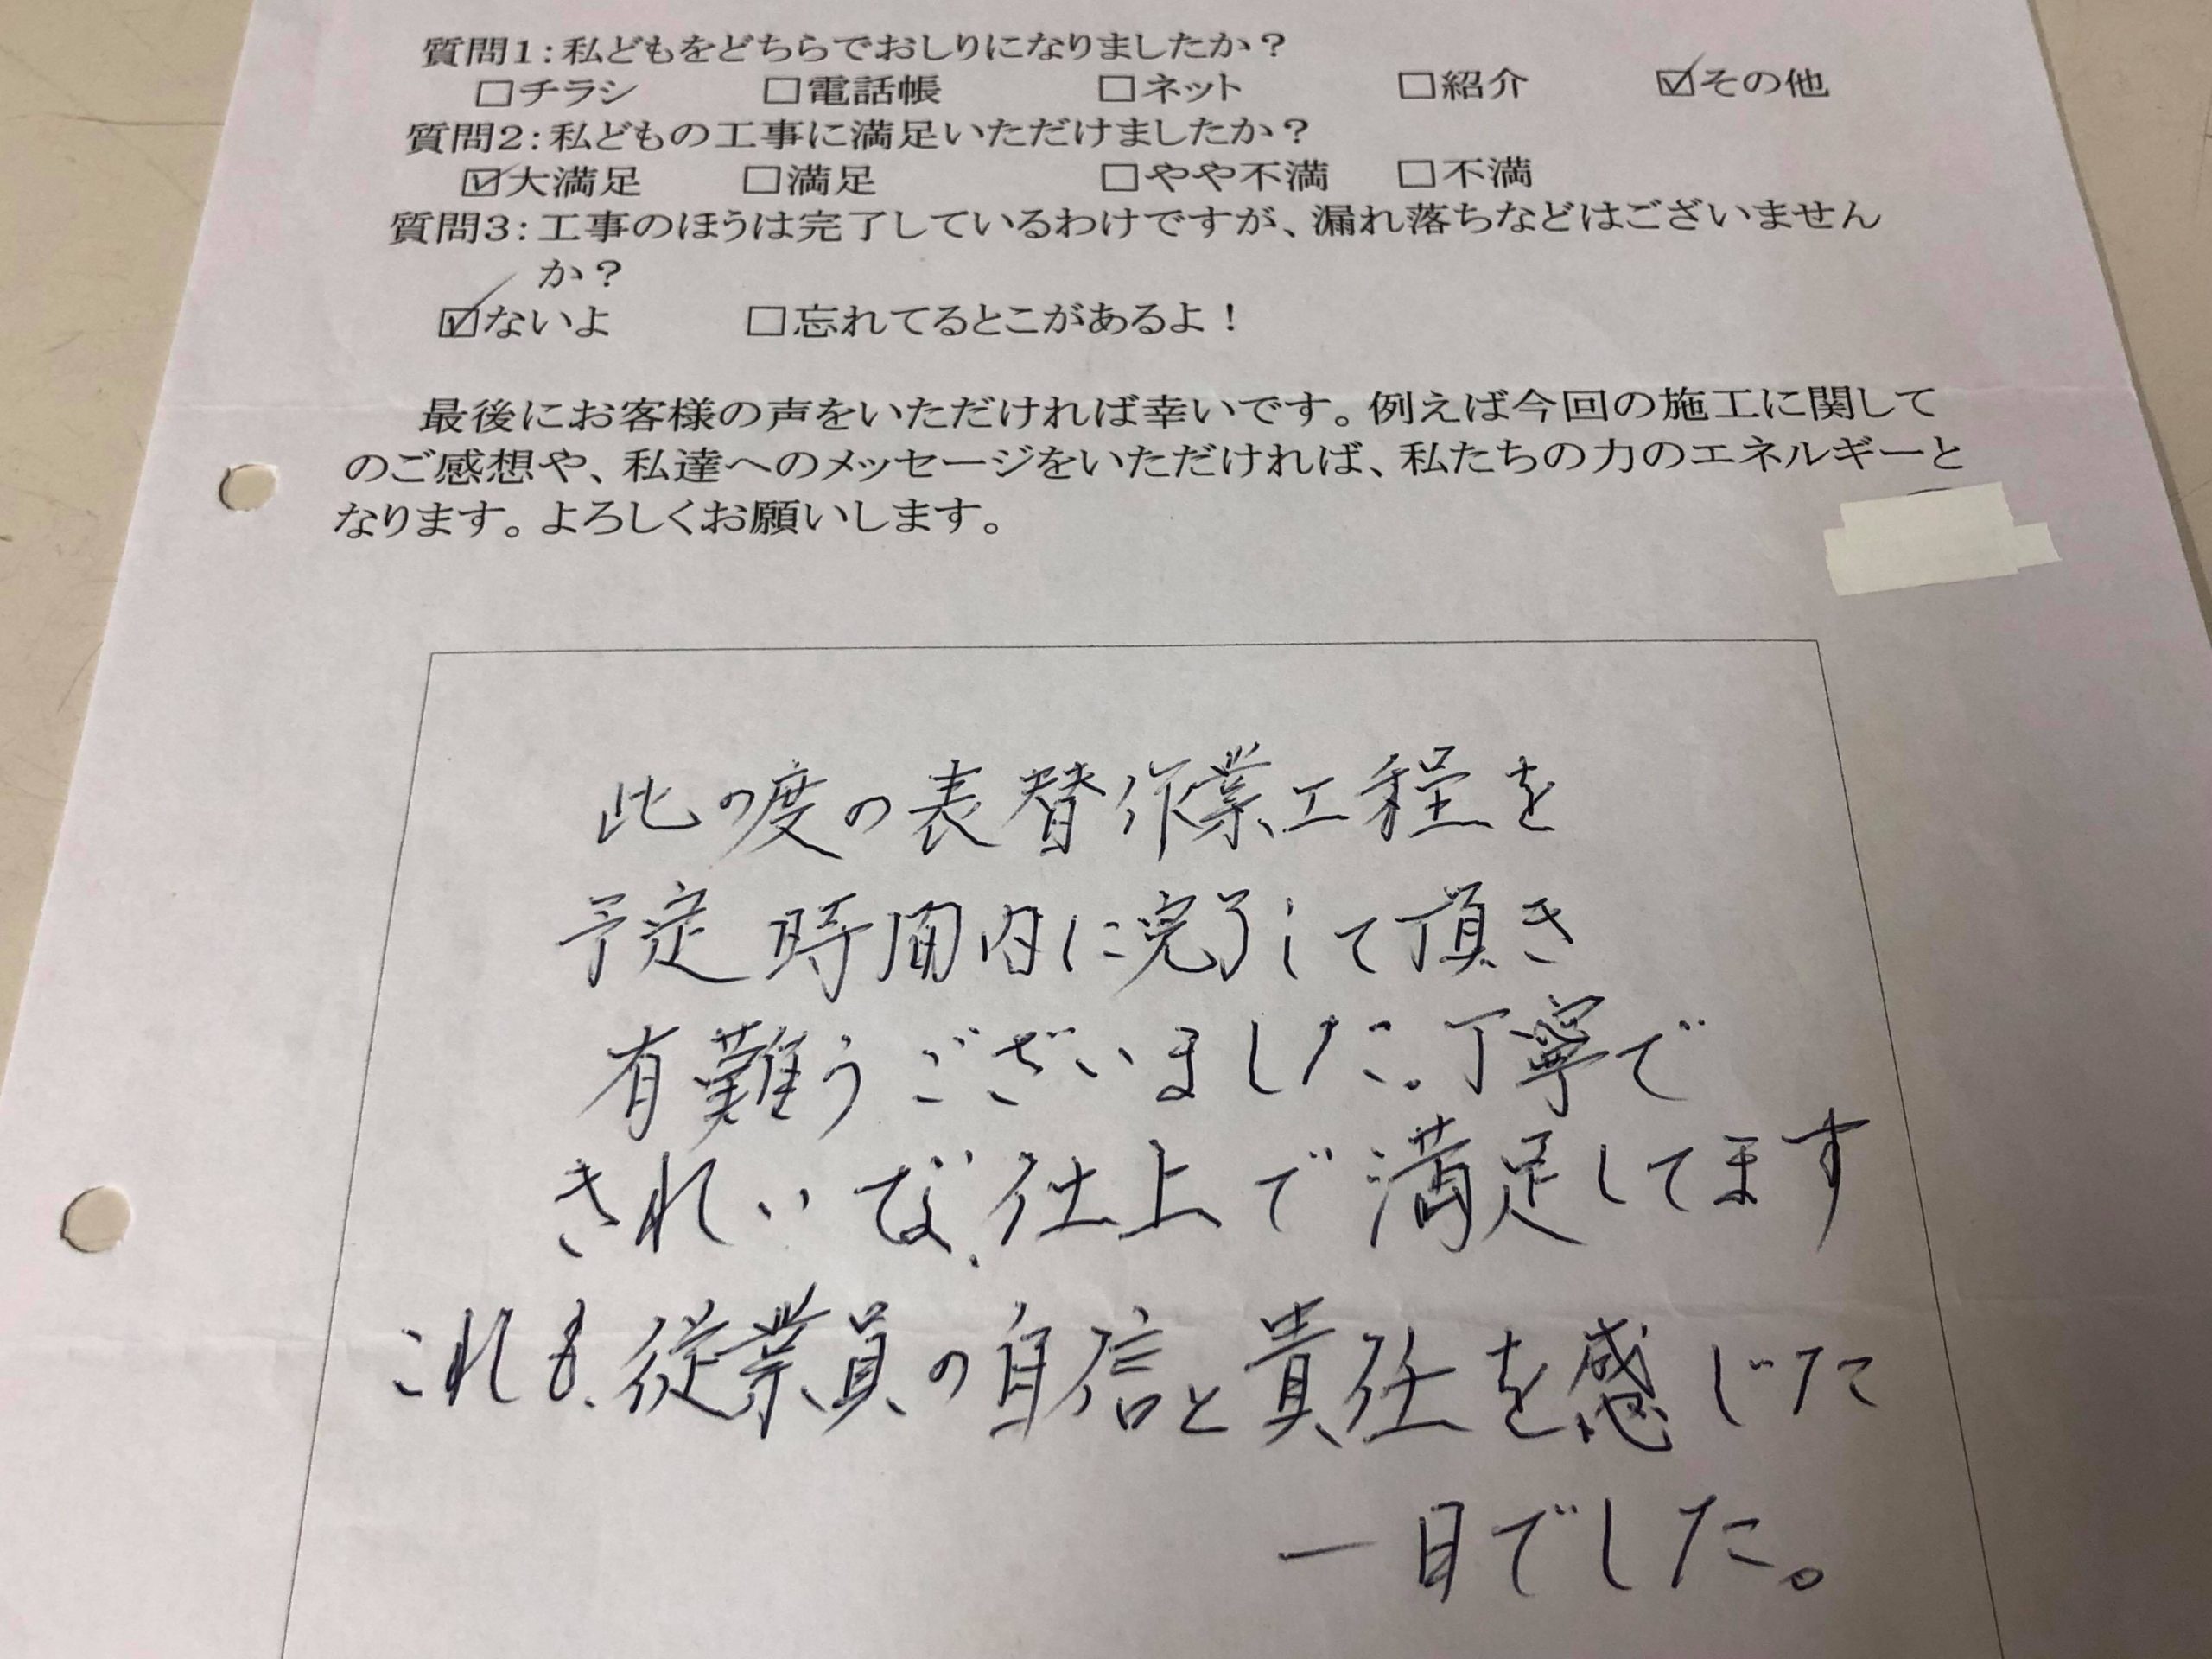 質問1:私どもをどちらでおしりになりましたか？
□チラシ □電話帳 □ネット □紹介 ☑その他
質問2:私どもの工事に満足いただけましたか？
☑大満足 □満足 □やや不満 □不満
質問3:工事のほうは完了しているわけですが、漏れ落ちなどはございません
か？
☑ないよ □忘れてるとこがあるよ！
最後にお客様の声をいただければ幸いです。例えば今回の施工に関して
のご感想や、私達へのメッセージをいただければ、私たちの力のエネルギーと
なります。よろしくお願いします。
此の度の表替作業工程を
予定時間内に完了して頂き
有難うございました。丁寧で
きれいな仕上で満足してます
これも、従業員の自信と責任を感じた
一日でした。